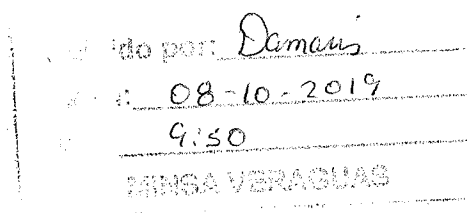 por: Damaris
08-10-2019
9:50
MINSA VERAGUAS